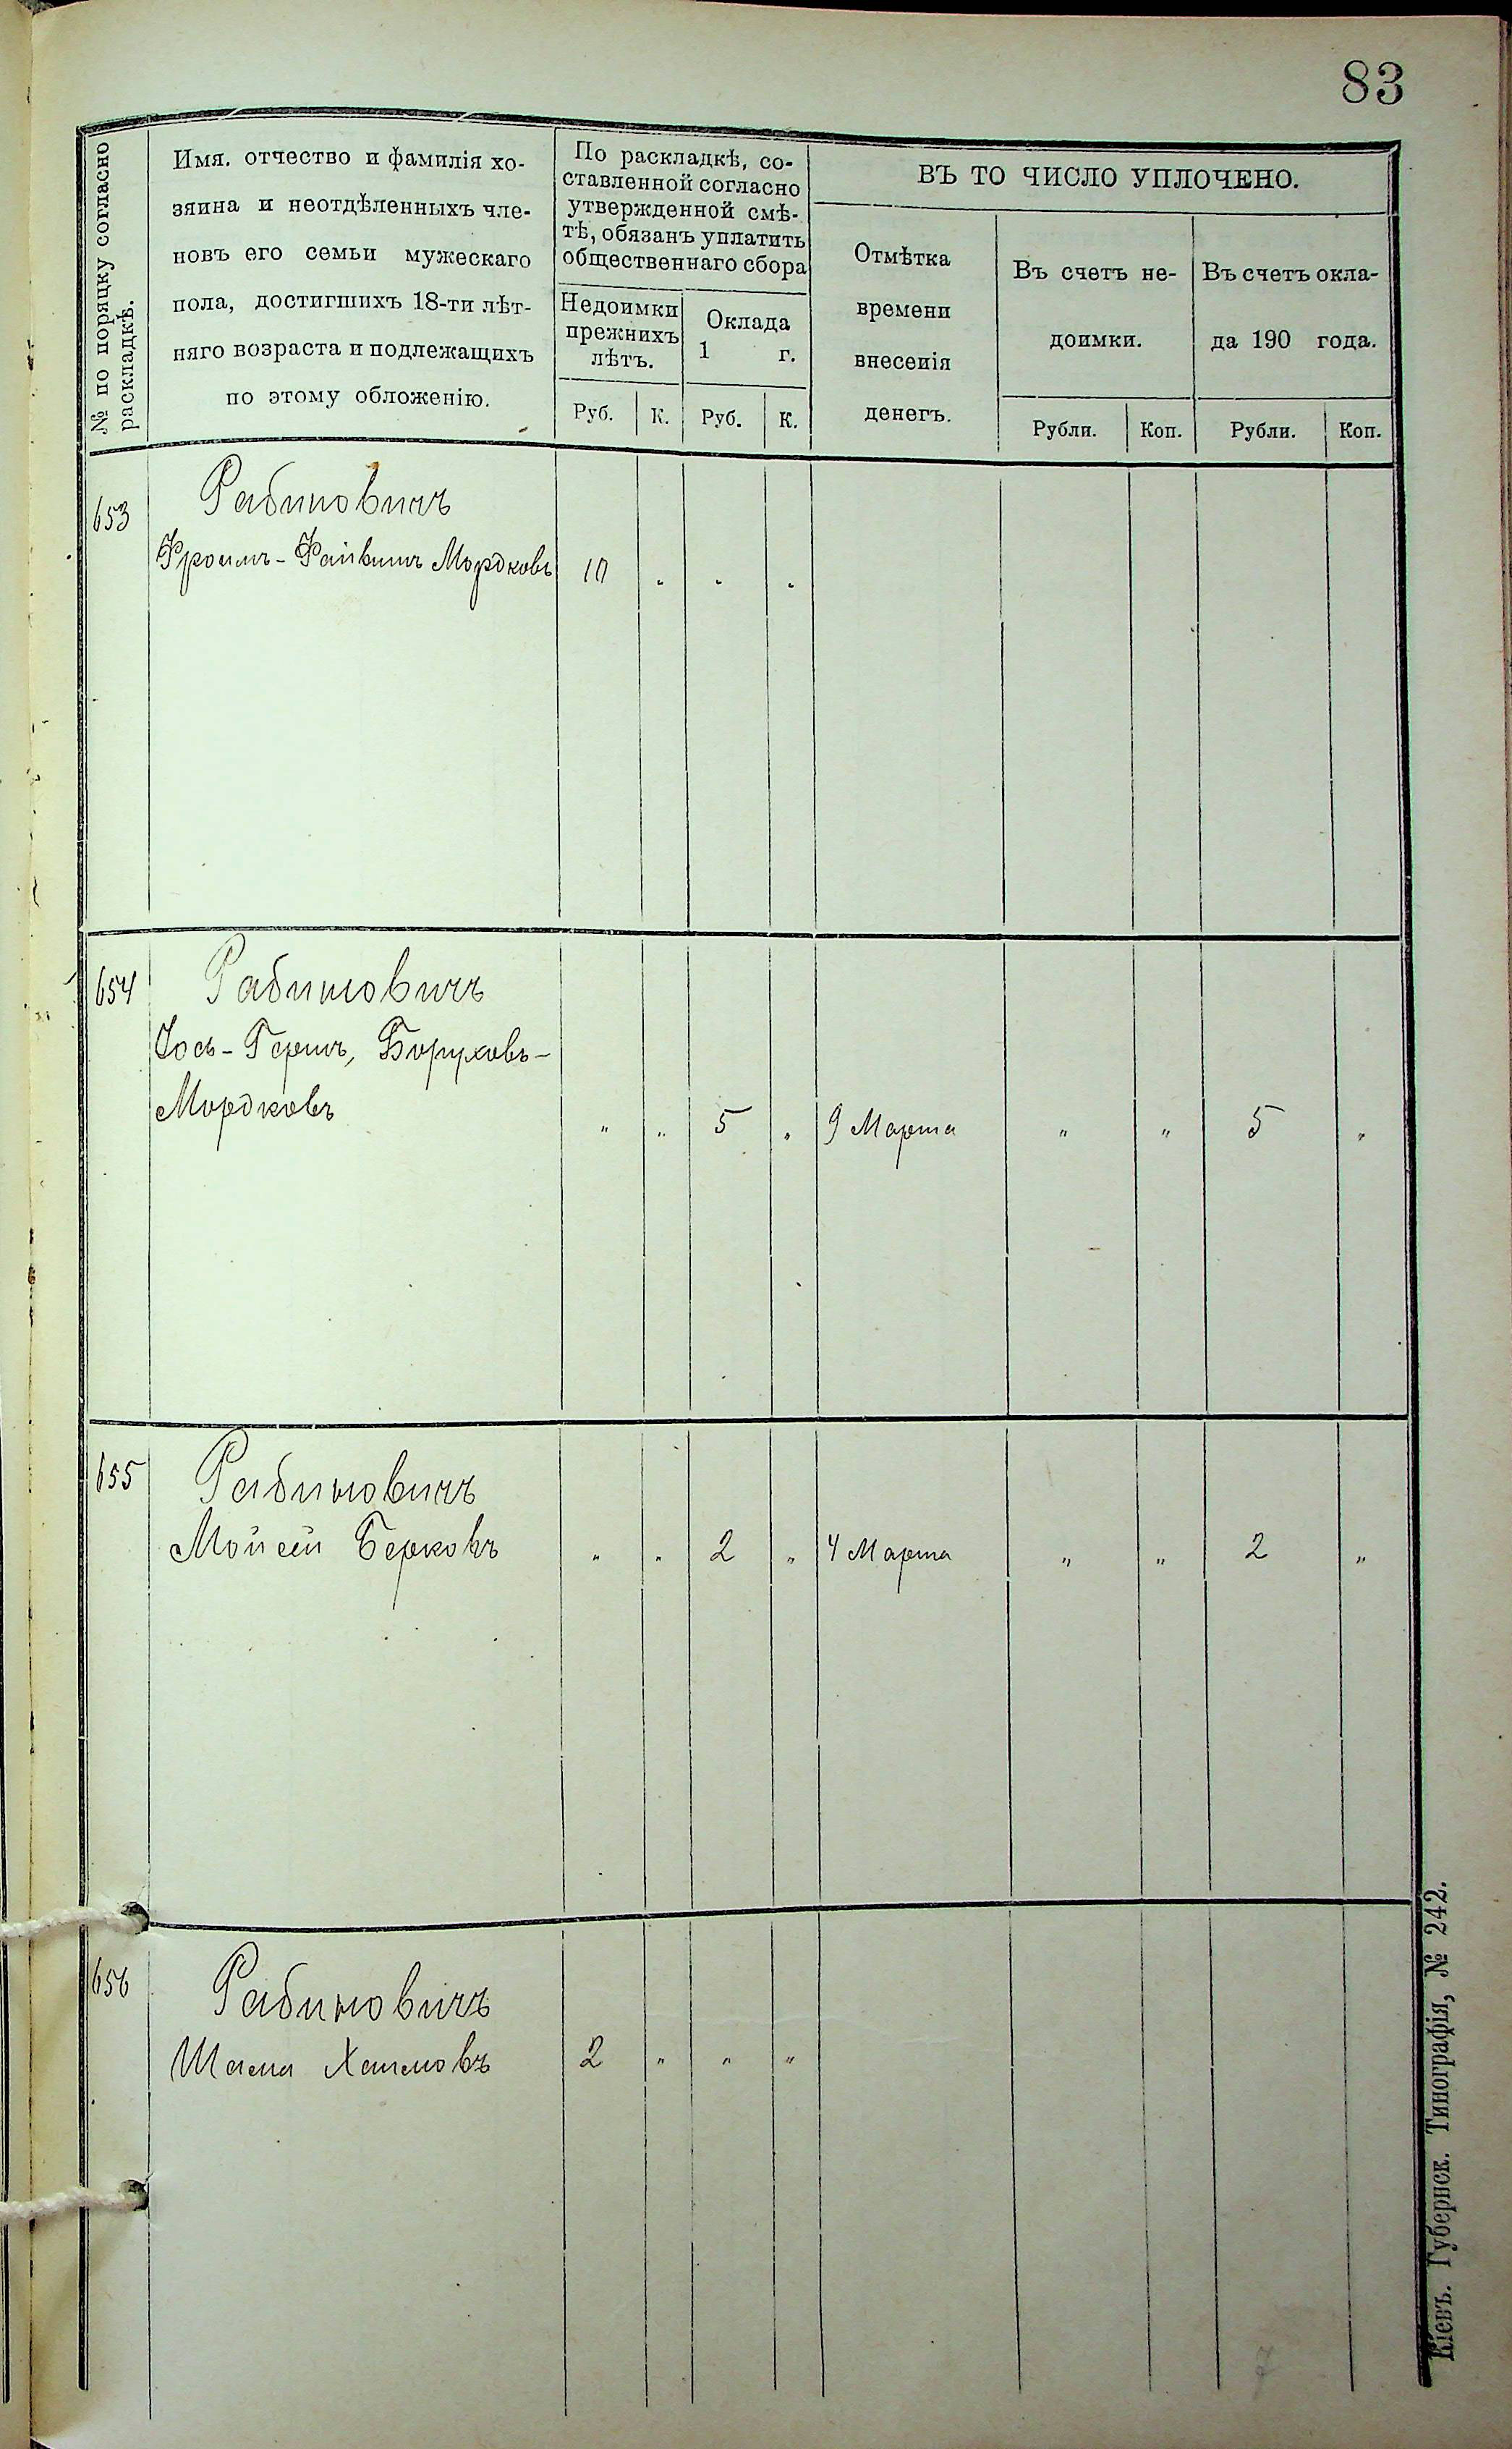 83
№ по поряцку согласно
раскладкѣ.
Имя. отчество и фамилія хо-
зяина и неотдѣленныхъ чле-
новъ его семьи мужескаго
пола, достигшихъ 18-ти лѣт-
няго возраста и подлежащихъ
по этому обложенію.
По раскладкѣ, со-
ставленной согласно
утвержденной смѣ-
тѣ, обязанъ уплатить
общественнаго сбора
Недоимки
прежнихъ
лѣтъ.
Оклада
1 г.
Руб. К. Руб. К.
ВЪ ТО ЧИСЛО УПЛОЧЕНО.
Отмѣтка
времени
внесенія
денегъ.
Въ счетъ не-
доимки.
Въ счетъ окла-
да 190 года.
Рубли. Коп. Рубли. Коп.
653 Рабиновичъ
Фроимъ-Файвишъ Мордковъ 10 „ „ „
654 Рабиновичъ
Іось-Гершъ, Боруховъ-
Мордковъ „ „ 5 „ 9 Марта „ „ 5 „
655 Рабиновичъ
Мойсей Берковъ „ „ 2 „ 4 Марта „ „ 2 „
656 Рабиновичъ
Шама Хаимовъ 2 „ „ „
Кіевъ. Губернск. Типографія, № 242.